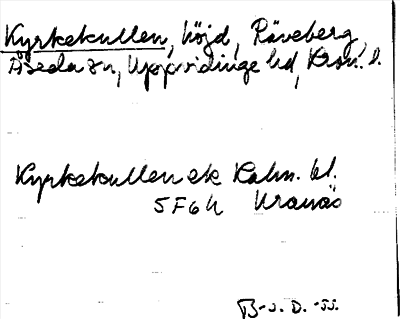 Kyrkekullen, höjd, Räveberg,
Åseda sn, Uppvidinge hd, Kron. l.
Kyrkekullen ek Kalm. bl.
5F6h Kranås
B-s. D. -55.